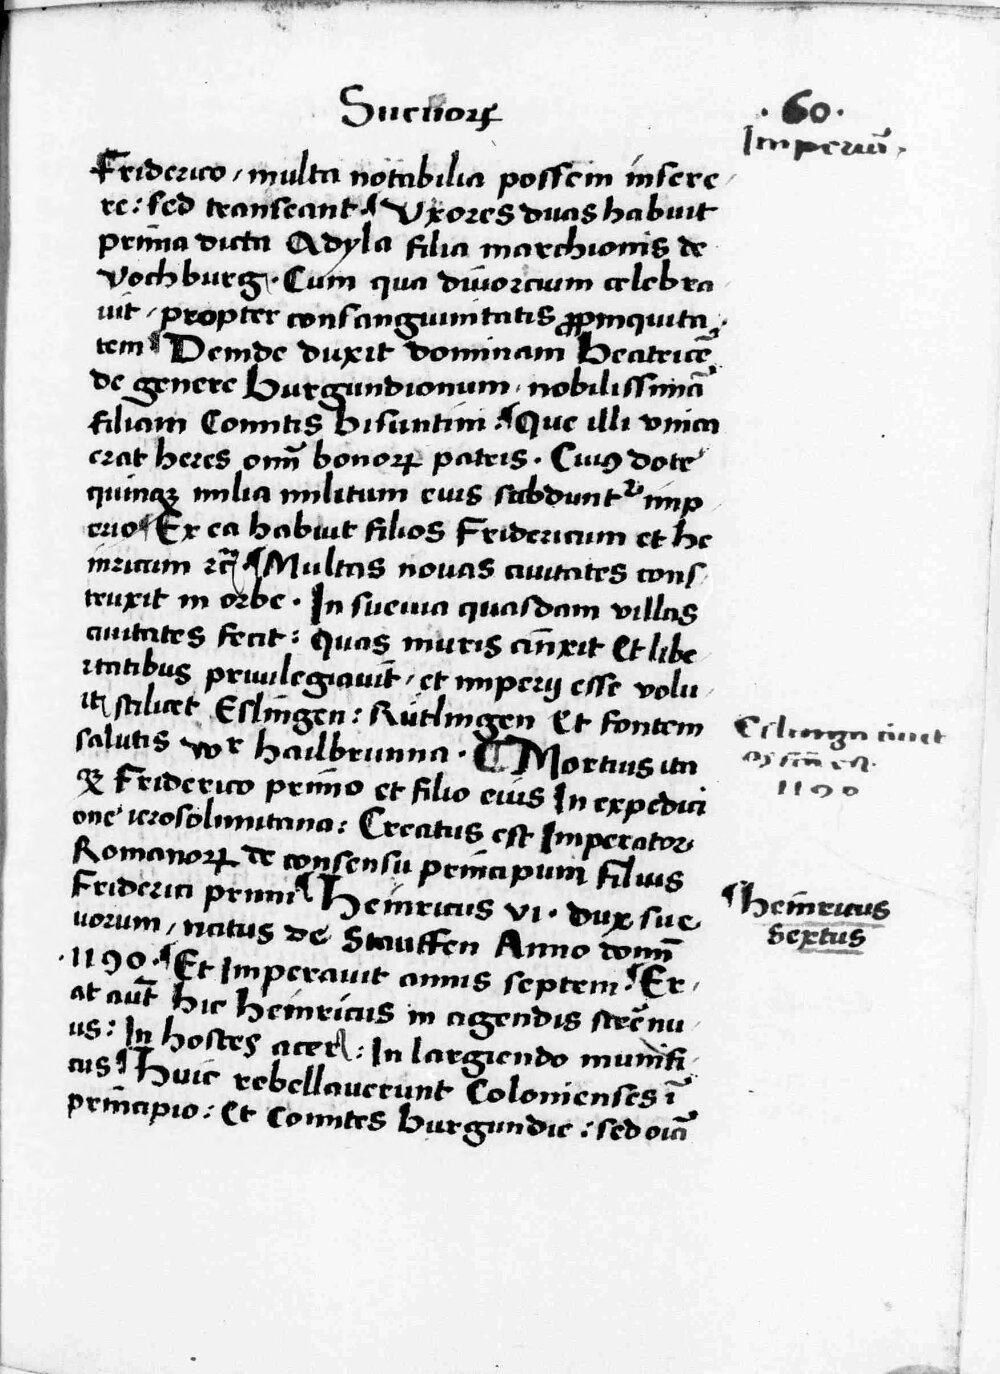 Sueuoꝝ
· 60 ·
Imperiū.
Friderico, multa notabilia possem insere
re: sed transeant. ¶ Vxores duas habuit
prima dicta Adyla filia marchionis de
Vochburg. Cum qua diuorcium celebra
uit, propter consanguinitatis ꝓpinquita
tem ¶ Deinde duxit dominam Beatricē
de genere Burgundionum, nobilissimā
filiam Comitis Bisuntini: ¶ Que illi vnica
erat heres oīm bonoꝝ patris. Cuiꝯ dote
quinqꝫ milia militum eius subduntʳ imp
erio ¶ Ex ea habuit filios Fridericum et he
inricum ꝛc̄ ¶ Multas nouas ciuitates cons
truxit in orbe. In sueuia quasdam villas
ciuitates fecit: quas muris cīnxit Et libe
rtatibus priuilegiauit, et imperij esse volu
it scilicet Eslingen: Rutlingen Et fontem
salutis vor hailbrunna. ¶ Mortuus ita
qꝫ Friderico primo et filio eius In expedici
one ierosolimitana: Creatus est Imperator
Romanoꝝ de consensu principum filius
Friderici primi ¶ Heinricus VI. dux sue
uorum, natus de Stauffen Anno domī
·1190· ¶ Et Imperauit annis septem. ¶ Er
at aut̄ hic Heinricus in agendis strēnu
us: In hostes acer: In largiendo munifi
cus ¶ Huic rebellauerunt Colonienses ī
principio: Et Comites Burgundie: sed oīa
Eslinga ciuit
1190
¶ Heinricus
Sextus